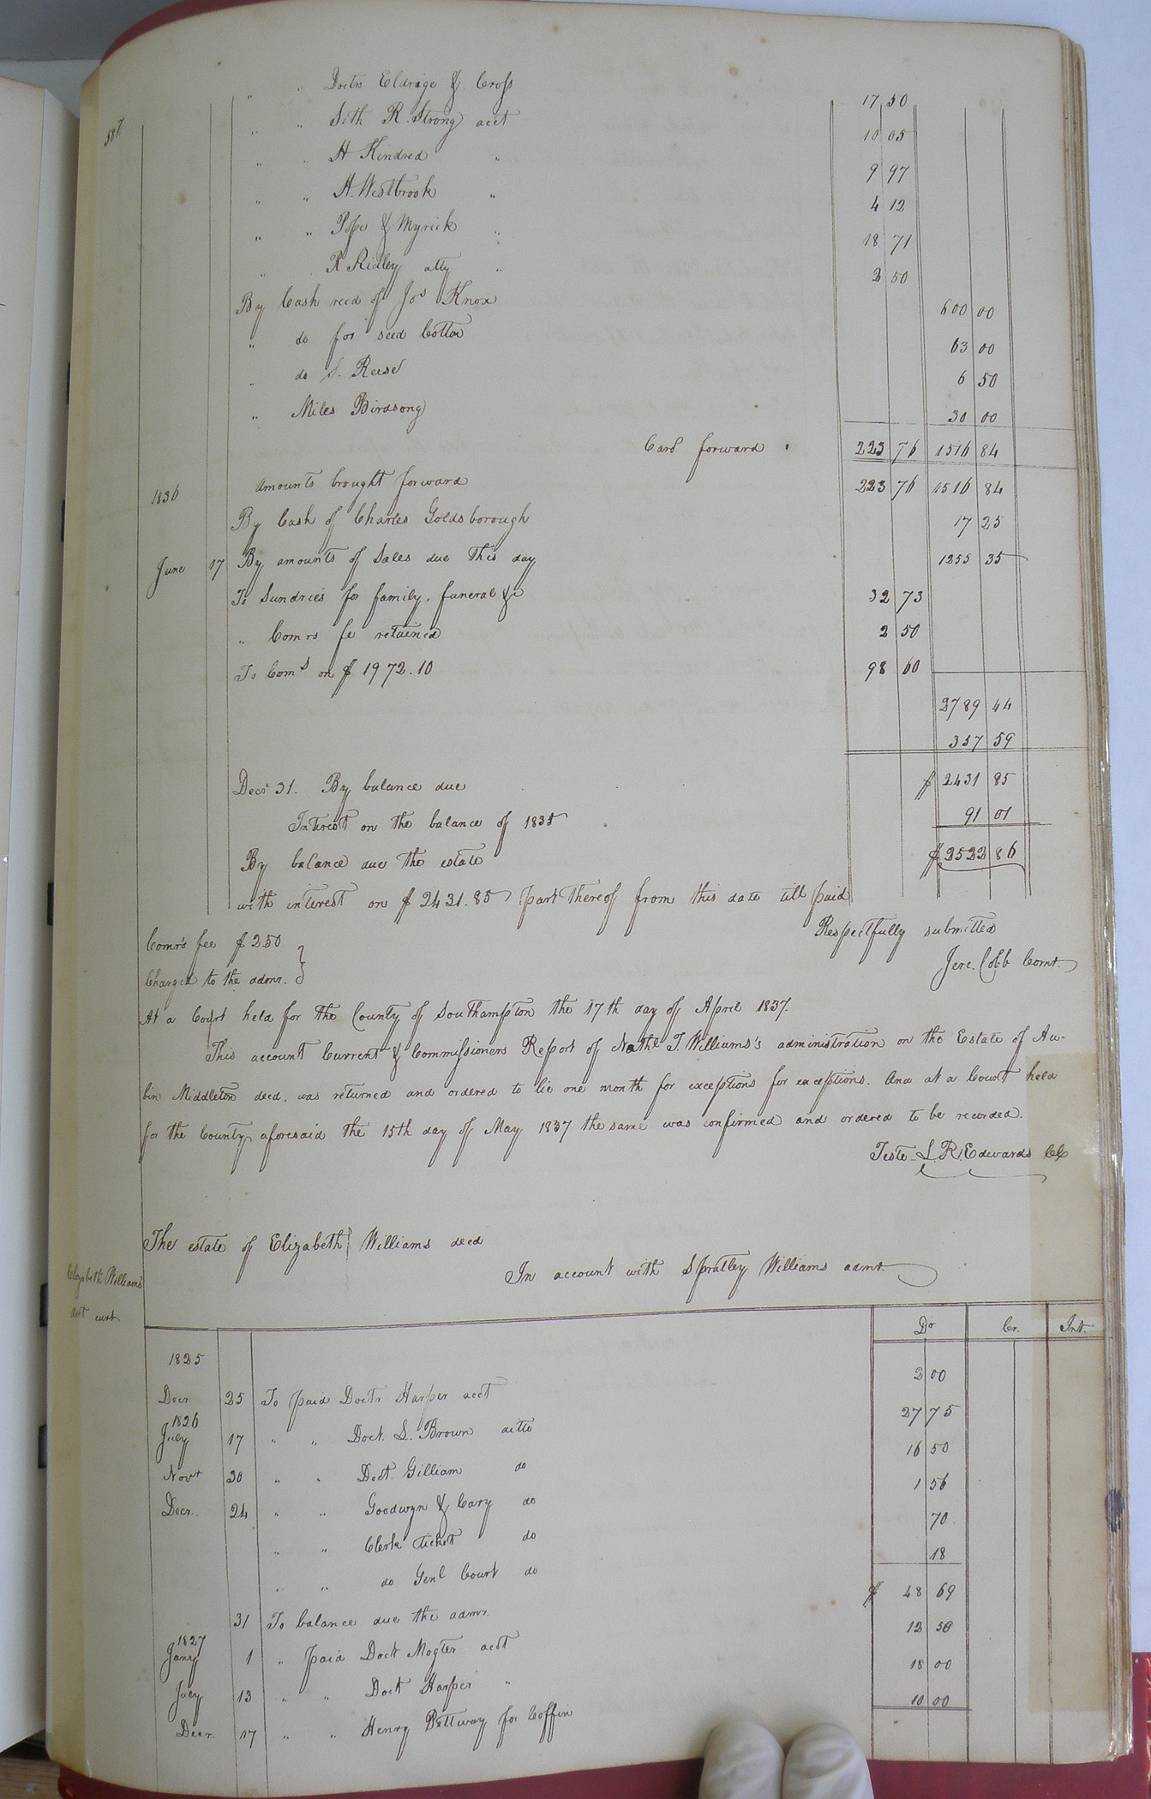 587
" " Doctr Eldrige & Cross 17 50
" " Seth R. Strong acct 10 05
" " H Kindred " 9 97
" " H. Westbrook " 4 12
" " Pope & Myrick " 18 71
" " R Ridley atty " 2 50
By Cash recd of Jos Knox 600 00
" do for seed Cotton 63 00
" do S. Reese 6 50
" Miles Birdsong 30 00
Card forward 223 76 1516 84
1836 amounts brought forward 223 76 1516 84
By Cash of Charles Goldsborough 17 25
June 17 By amounts of Sales due this day 1255 35
To Sundries for family, funeral &c 32 73
" Comrs fe retained 2 50
To Coms on $1972.10 98 60
2789 44
357 59
Decr 31. By balance due $2431 85
Interest on the balance of 1835 91 01
By balance due the estate $2522 86
with interest on $2431.85 part thereof from this date till paid
Respectfully submitted
Comrs fee $2.50
Jere. Cobb Comr.
Charged to the admr.
At a Court held for the County of Southampton the 17th day of April 1837.
This account Current & Commissioners Report of Nathl T. Williams's administration on the Estate of Au-
bin Middleton decd. was returned and ordered to lie one month for exceptions for exceptions. And at a Court held
for the County aforesaid the 15th day of May 1837 the same was confirmed and ordered to be recorded.
Teste L. R. Edwards CC
The estate of Elizabeth Williams decd
In account with Spratley Williams admr.
Elizabeth Williams
Acct curt.
Dr Cr. Int.
1825
Decr 25 To paid Doctr Harper acct 2 00
1826
July 17 " " Doct. S. Brown ditto 27 75
Novr 30 " " Doct. Gilliam do 16 50
Decr. 24 " " Goodwyn & Cary do 1 56
" " Clerks Tickets do 70
" " do Genl Court do 18
31 To balance due the admr. $ 48 69
1827
Jany 1 " paid Doct Mogter acct 12 50
July 13 " " Doct Harper " 18 00
Decr. 17 " " Henry Pettway for Coffin 10 00